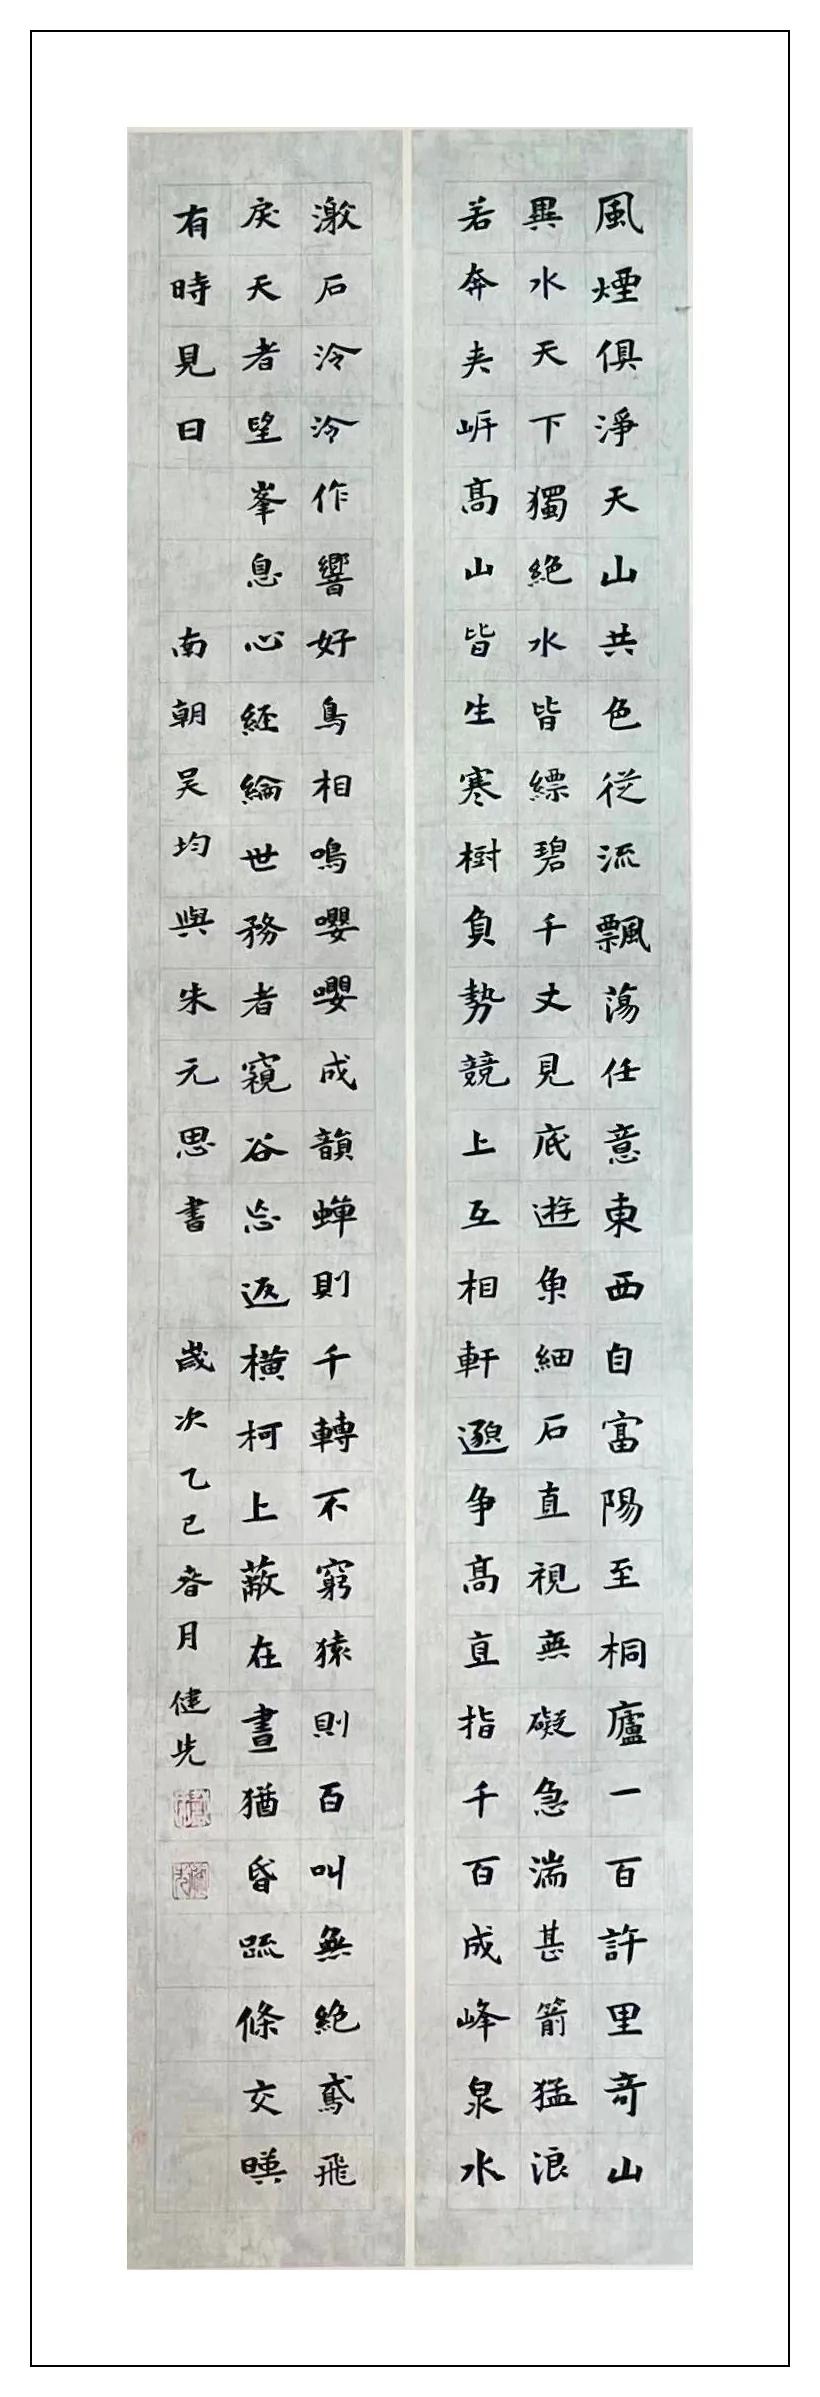 風煙俱淨天山共色從流飄蕩任意東西自富陽至桐廬一百許里奇山
異水天下獨絕水皆縹碧千丈見底遊魚細石直視無礙急湍甚箭猛浪
若奔夾岸高山皆生寒樹負勢競上互相軒邈爭高直指千百成峰泉水
激石泠泠作響好鳥相鳴嚶嚶成韻蟬則千轉不窮猿則百叫無絕鳶飛
戾天者望峯息心經綸世務者窺谷忘返橫柯上蔽在晝猶昏疏條交暎
有時見日 南朝吴均與朱元思書 歲次乙巳春月健先